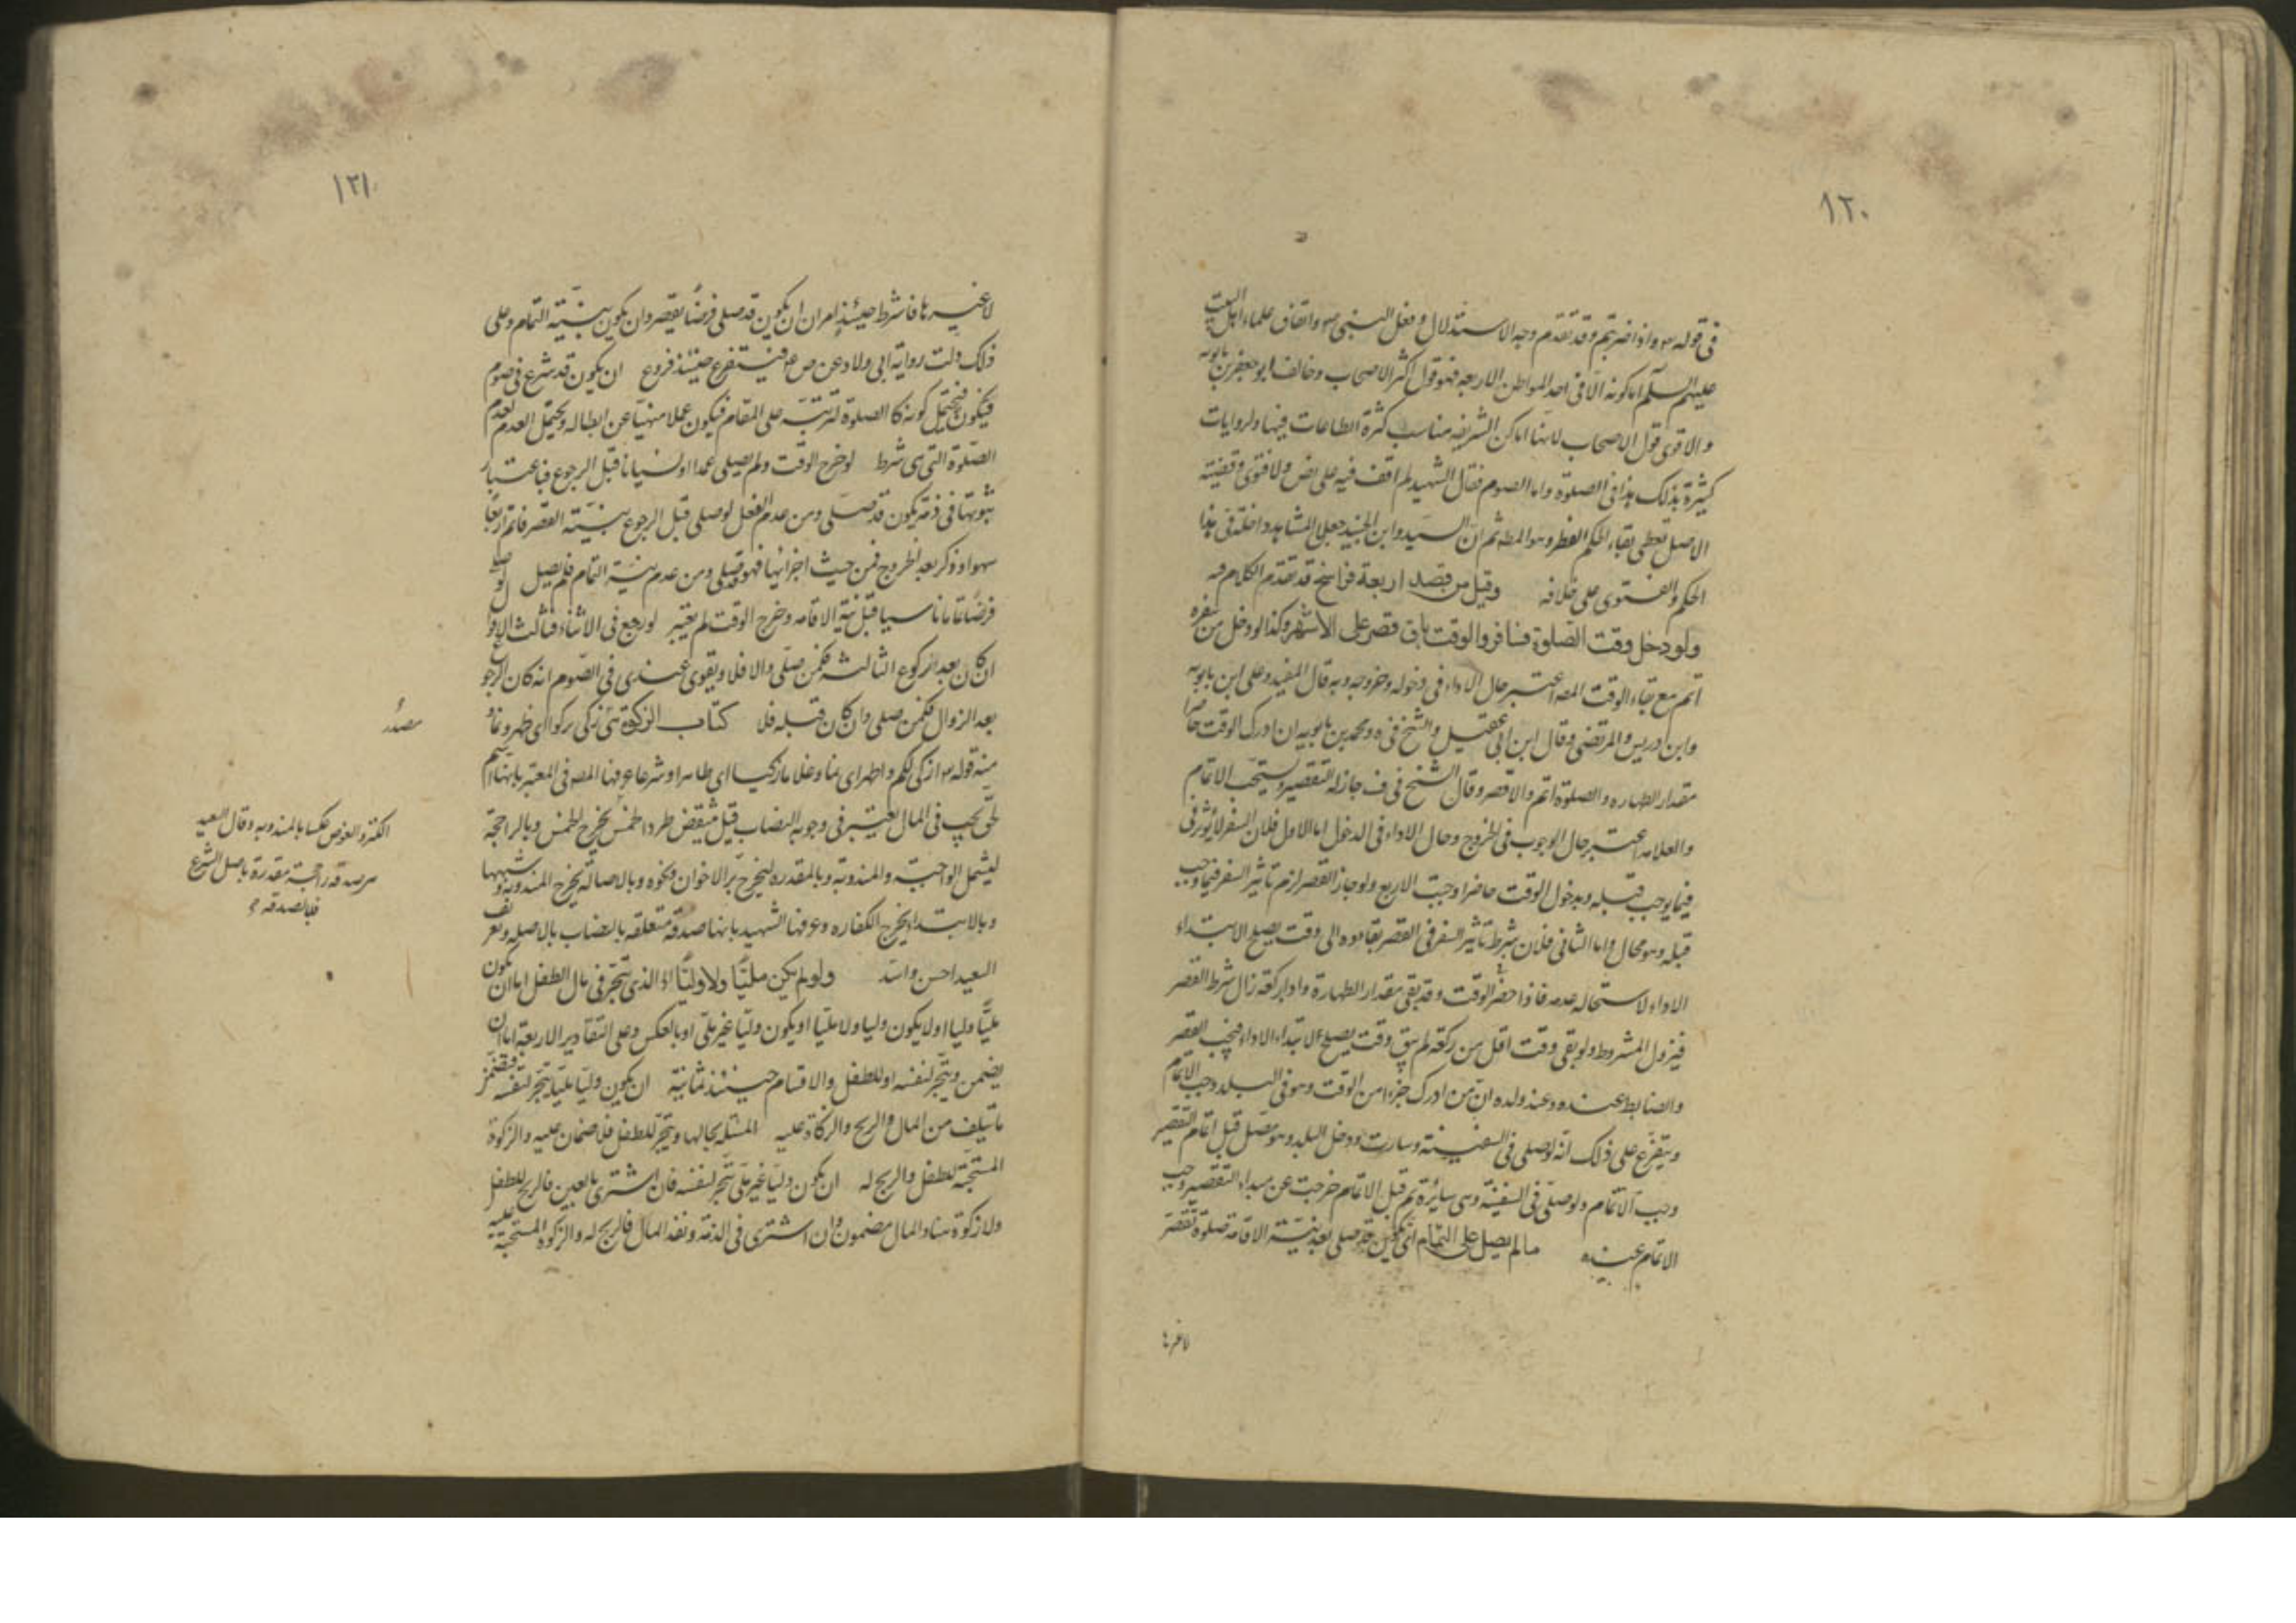 ١٢٠
فى قوله تع واذا ضربتم وقد تقدم وجه الاستدلال وفعل النبى ص واتفاق علماء اهل البيت
عليهم السلم اما كونه الا فى احد المواطن الاربعه فهو قول اكثر الاصحاب وخالف ابو جعفر بن بابويه
والاقوى قول الاصحاب لانها اماكن الشريفه مناسب كثرة الطاعات فيها ولروايات
كثيرة بذلك هذا فى الصلوة واما الصوم فقال الشهيد لم اقف فيه على نص ولا فتوى وقضيته
الاصل تعطى بقاء الحكم الفطر وهو المط ثم ان السيد وابن الجنيد جعلا المشاهد داخلة فى هذا
الحكم والفتوى على خلافه وقيل من قصد اربعة فراسخ قد تقدم الكلام فيه
ولو دخل وقت الصلوة فسافر والوقت باق قصر على الاشهر وكذا لو دخل من سفره
اتم مع بقاء الوقت المص اعتبر حال الاداء فى دخوله وخروجه وبه قال المفيد وعلى ابن بابويه
وابن ادريس والمرتضى وقال ابن ابى عقيل والشيخ فى ه ومحمد بن بابويه ان ادرك الوقت حاضرا
مقدار الطهاره والصلوة اتم والا قصر وقال الشيخ فى ف جاز له التقصير ويستحب الاتمام
والعلامه اعتبر حال الوجوب فى الخروج وحال الاداء فى الدخول اما الاول فلان السفر لا يؤثر فى
فيما يوجب قبله وبدخول الوقت حاضرا وجبت الاربع ولو جاز القصر لزم تاثير السفر فيما وجب
قبله وهو محال واما الثانى فلان شرط تاثير السفر فى القصر بقاءه الى وقت يصلح الابتداء
الاداء لاستحاله عدمه فاذا حضر الوقت وقد بقى مقدار الطهارة واداء ركعة زال شرط القصر
فيزول المشروط ولو بقى وقت اقل من ركعة لم يبق وقت يصلح لابتداء الاداء فيجب القصر
والضابط عنده وعند ولده ان من ادرك جزءا من الوقت وهو فى البلد وجب الاتمام
ويتفرع على ذلك انه لو صلى فى السفينة وسارت ودخل البلد وهو مصل قبل اتمام التقصير
وجب الاتمام ولو صلى فى السفينة وهى سائرة ثم قبل الاتمام خرجت عن مبداء التقصير وجب
الاتمام عنده مالم يصل على التمام اى يكون قد صلى بعد نية الاقامة صلوة تقصر
لا غيرها
١٢١
لا غيرها فاشرط حينئذ امران ان يكون قد صلى فرضا يقصر وان يكون بنية التمام وعلى
ذلك دلت رواية ابى ولاد عن ص ع فيتفرع حينئذ فروع ان يكون قد شرع فى صوم
فيكون فيحتمل كونه كالصلوة لترتبه على المقام فيكون عملا منهيا عن ابطاله ويحتمل العدم لعدم
الصلوة التى هى شرط لو خرج الوقت ولم يصلى عمدا او نسيانا قبل الرجوع فباعتبار
ثبوتها فى ذمته يكون قد صلى ومن عدم الفعل لو صلى قبل الرجوع بنية القصر فاتم اربعا
سهوا وذكر بعد الخروج فمن حيث اجزائها فهو قد صلى ومن عدم نية التمام فلم يصل لو صلى
فرضا تماما ناسيا قبل نية الاقامه وخرج الوقت لم يعتبر لو رجع فى الاثناء فثالث الاقوال
ان كان بعد الركوع الثالثه فكمن صلى والا فلا ويقوى عندى فى الصوم انه كان الرجوع
بعد الزوال فكمن صلى وان كان قبله فلا كتاب الزكوة هى زكى يزكوا اى طهر ونما و
منه قوله تع ازكى لكم واطهر اى نما وغلاما زكيا اى طاهرا وشرعا عرفها المص فى المعتبر بانها اسم
لحق يجب فى المال يعتبر فى وجوبه النصاب قيل ينتقض طردا خمس يخرج الخمس وبالراجحة
ليشمل الواجبة والمندوبة وبالمقدره ليخرج بر الاخوان ونحوه وبالاصاله يخرج المندوبه وشبهها
وبالابتداء يخرج الكفاره وعرفها الشهيد بانها صدقة متعلقه بالنصاب بالاصله وتعريف
السعيد احسن واسد ولو لم يكن مليا ولا وليا اه الذى يتجر فى مال الطفل اما ان يكون
مليا وليا او لا يكون وليا ولا مليا او يكون وليا غير ملى او بالعكس وعلى التقادير الاربعة اما ان
يضمن ويتجر لنفسه او للطفل والاقسام حينئذ ثمانية ان يكون وليا مليا يتجر لنفسه فيضمن
ما يتلف من المال والربح والزكاة عليه المسئلة بحالها ويتجر للطفل فلا ضمان عليه والزكوة
المستحبة للطفل والربح له ان يكون وليا غير ملى يتجر لنفسه فان اشترى بالعين فالربح للطفل
ولا زكوة هنا والمال مضمون وان اشترى فى الذمة ونقد المال فالربح له والزكوة المستحبة عليه
مصدر
الكنز والغوص عكسا بالمندوبه وقال السعيد
هى صدقه راجحة مقدرة باصل الشرع
فبالصدقه